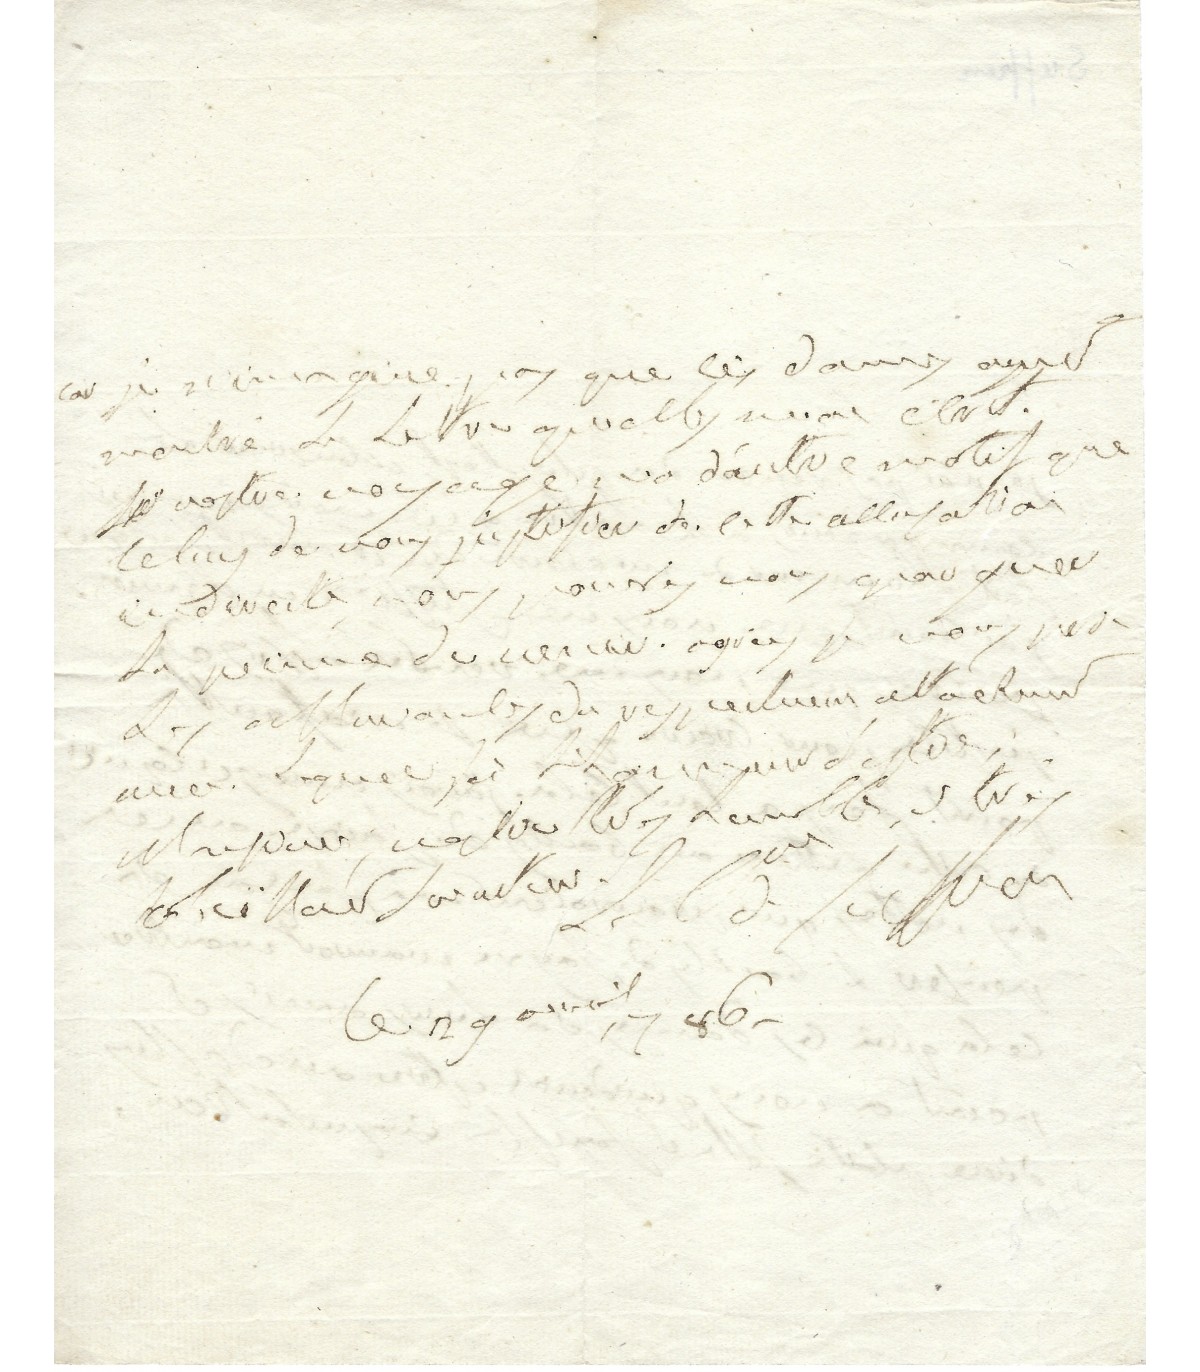 car je n'imagine pas que ces dames ayent
montré la lettre qu'elles mont écrit.
si vostre voyage na d'autre motif que
celuy de vous justifier de cette allegation
indirecte, vous pouvés vous epargner
la peine de venir. agrées je vous prie
les assurances du respectueux attachement
avec lequel j'ai l'honneur d'estre,
Monsieur, vostre tres humble, & tres
obeissant serviteur.
Le B^{li} de Suffren
Ce 29 avril 1786.